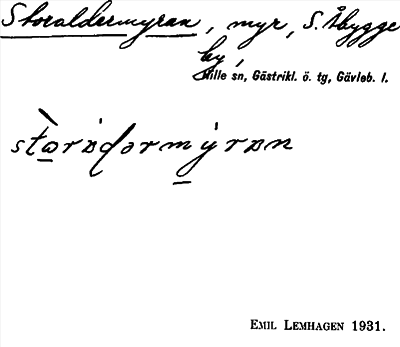 Storaldermyran, myr, S. Åbygge
by,
Hille sn, Gästrikl. ö. tg, Gävleb. l.
EMIL LEMHAGEN 1931.